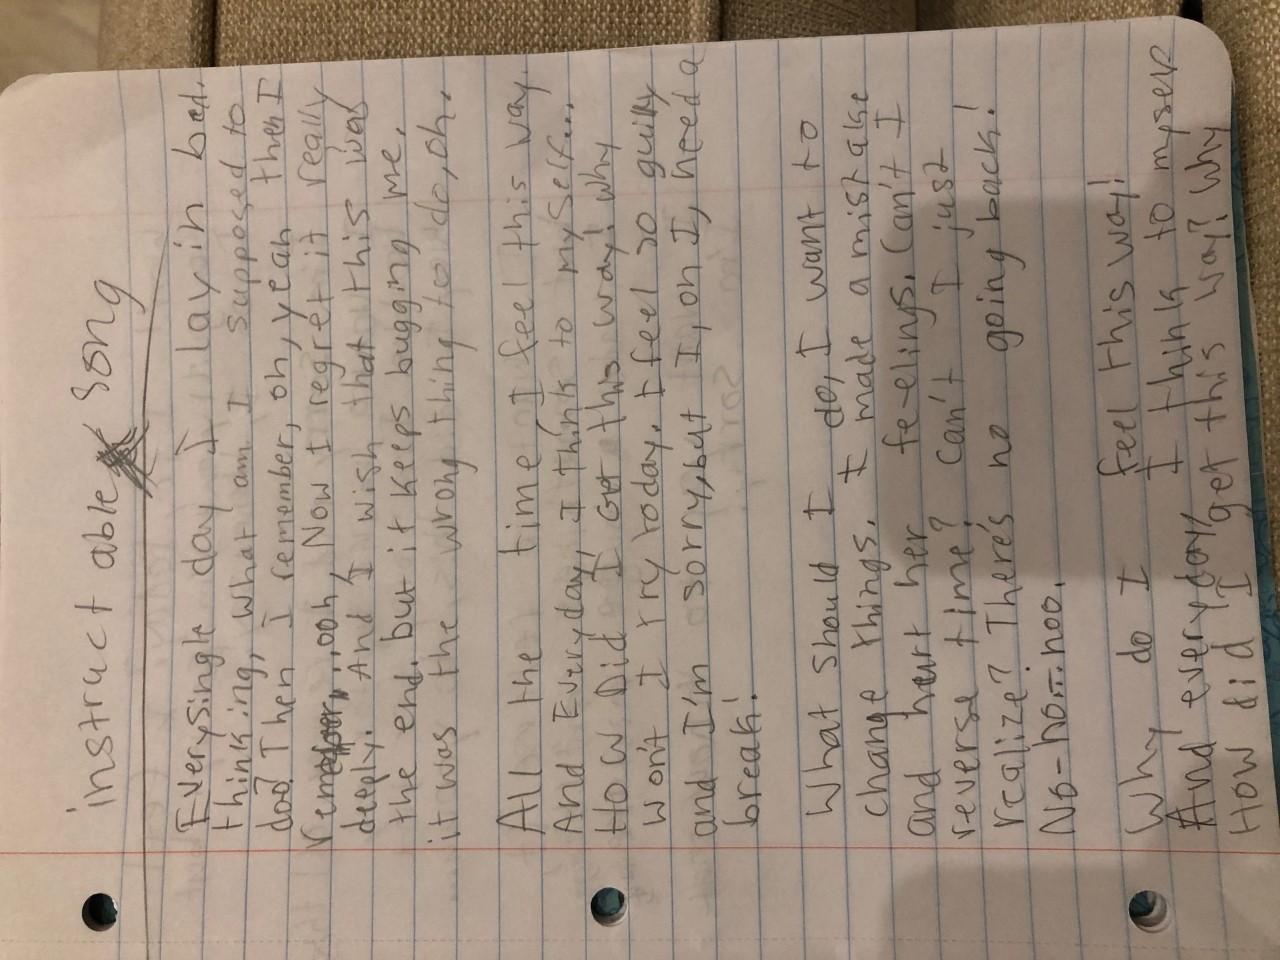 instruct able song
Everysingle day I lay in bed.
thinking, what am I supposed to
doo. Then I remember, oh, yeah then I
remember...ooh, Now I regret it really
deeply. And I wish that this was
the end. but it keeps bugging me.
it was the wrong thing to do, oh.
All the time I feel this way.
And Everyday, I think to myself...
How Did I Get this way! why
won't I try today. I feel so guilty
and I'm sorry, but I, oh I, need a
break!
What should I do, I want to
change things. I made a mistake
and hurt her fe-elings. Can't I
reverse time? Can't I just
realize? There's no going back!
No-ho...noo.
Why do I feel this way!
And everyday, I think to myself
How did I get this way? Why